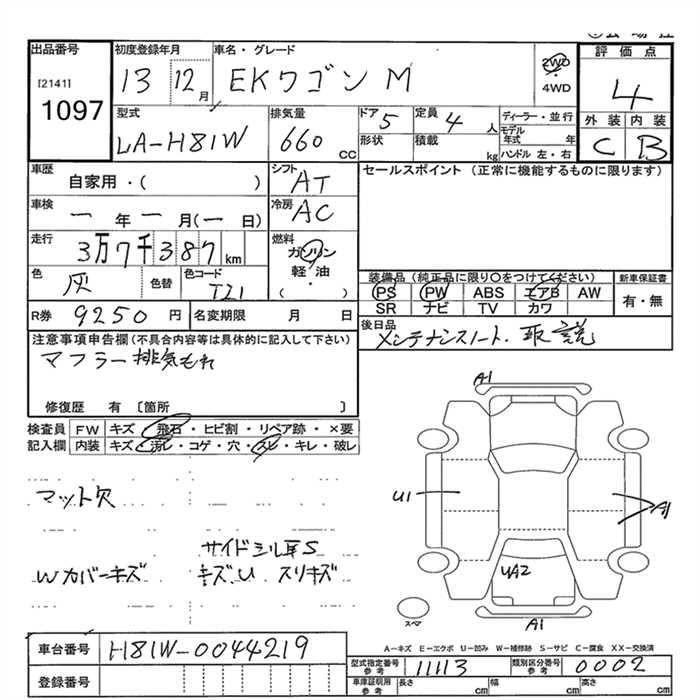 出品番号 初度登録年月 車名・グレード 評価点
[2141] 13 12月 EKワゴン M 2WD 4WD 4
1097
型式 排気量 ドア 5 定員 4人 ディーラー・並行 外装 内装
LA-H81W 660 CC 形状 積載 kg モデル年式 年 C B
ハンドル 左・右
車歴 自家用・( ) シフト AT セールスポイント (正常に機能するものに限ります)
車検 一年一月(一日) 冷房 AC
走行 3万7千387km 燃料 ガソリン
軽・油
( )
色 灰 色替 色コード TZ1 装備品(純正品に限り○をつけてください) 新車保証書
PS PW ABS エアB AW 有・無
R券 9250円 名変期限 月 日 SR ナビ TV カワ
注意事項申告欄(不具合内容等は具体的に記入して下さい) 後日品 メンテナンスノート. 取説
マフラー排気もれ
修復歴 有 〔箇所 〕
検査員 FW キズ・飛石・ヒビ割・リペア跡・×要
記入欄 内装 キズ・汚レ・コゲ・穴・スレ・キレ・破レ
A1
マット欠 U1 A1
サイドシル耳S
Wカバーキズ キズU スリキズ UA2
スペア A1
車台番号 H81W-0044219 A-キズ E-エクボ U-凹み W-補修跡 S-サビ C-腐食 XX-交換済
型式指定番号 参考 11113 類別区分番号 参考 0002
登録番号 車庫証明用 参考 長さ cm 幅 cm 高さ cm